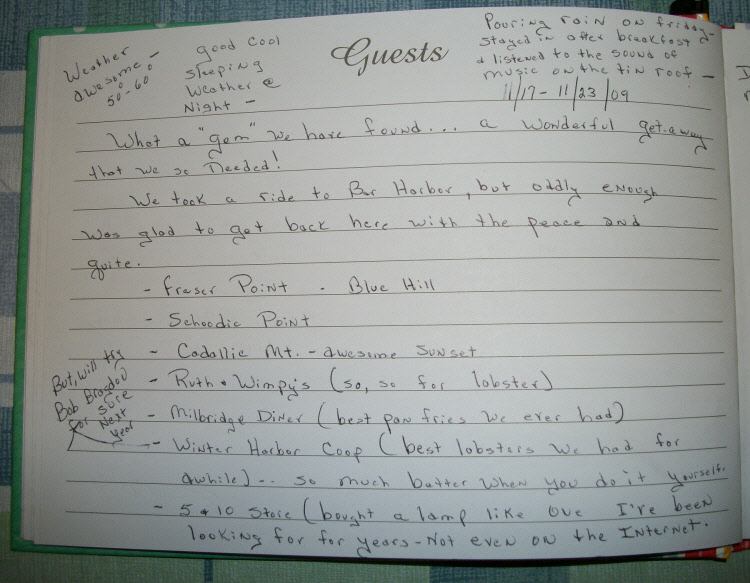 Weather
awesome -
50-60
good cool
sleeping
weather @
Night -
Guests
Pouring rain on friday -
stayed in after breakfast
& listened to the sound of
music on the tin roof -
11/17 - 11/23/09
What a "gem" we have found... a wonderful get-away
that we so needed!
We took a ride to Bar Harbor, but oddly enough
was glad to get back here with the peace and
quite.
- Fraser Point - Blue Hill
- Schoodic Point
- Cadallic Mt. - awesome sunset
- Ruth & Wimpy's (so, so for lobster)
- Milbridge Diner (best pan fries we ever had)
- Winter Harbor Coop (best lobsters we had for
awhile) -.. so much butter when you do it yourself.
- 5 & 10 store (bought a lamp like one I've been
looking for for years - Not even on the Internet.
But, will try
Bob Bragdon
for sure
Next
year